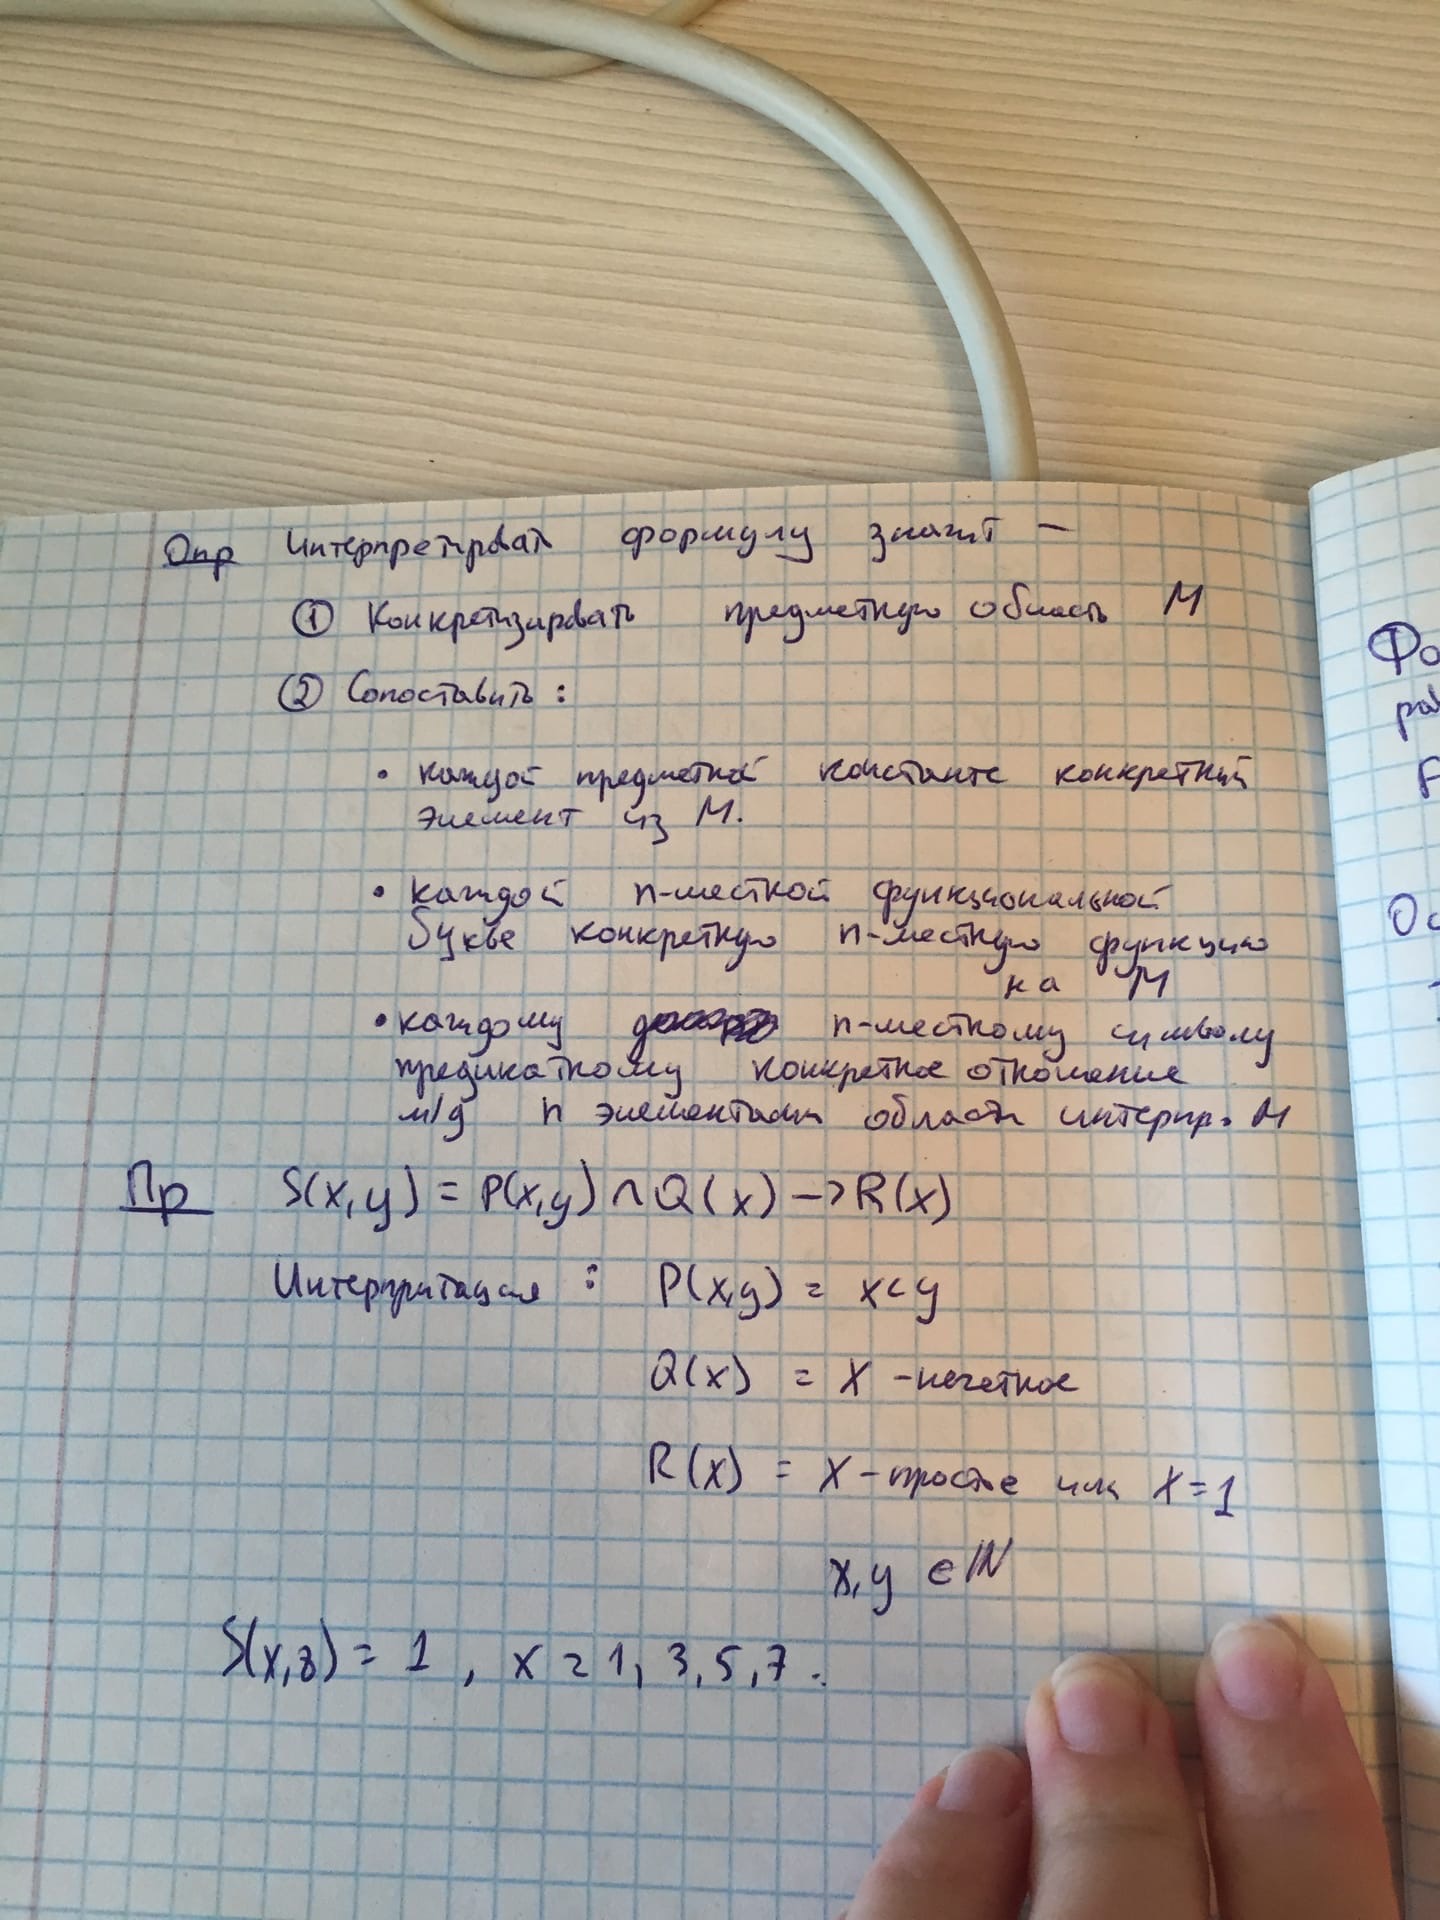 Опр Интерпретировать формулу значит —
① Конкретизировать предметную область M
② Сопоставить:
• каждой предметной константе конкретный
элемент из M.
• каждой n-местной функциональной
букве конкретную n-местную функцию
на M
• каждому n-местному символу
предикатному конкретное отношение
м/д n элементами области интерпр. M
Пр S(x,y) = P(x,y) ∧ Q(x) → R(x)
Интерпритация : P(x,y) = x<y
Q(x) = x - нечетное
R(x) = x - простое или x=1
x,y ∈ ℕ
S(x,8) = 1 , x = 1, 3, 5, 7.
Фо
F
Ос